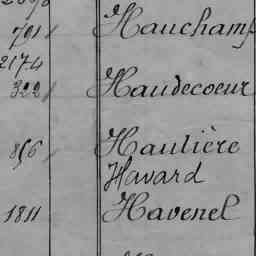 791 Hauchamp
2174
322 Haudecoeur
856 Haulière
Havard
1811 Havenel